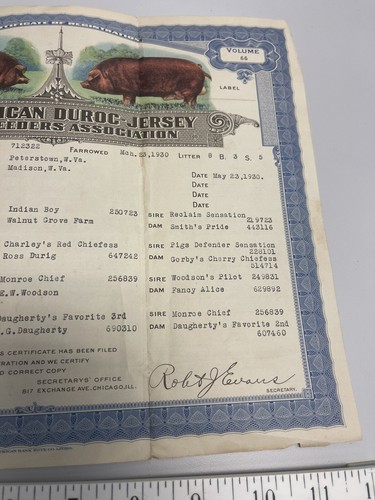 CERTIFICATE OF REGISTRATION
VOLUME
66
LABEL
ICAN DUROC-JERSEY
EEDERS ASSOCIATION
712322
FARROWED Mch. 23, 1930 LITTER 8 B. 3 S. 5
Peterstown, W.Va.
Madison, W.Va.
DATE May 23, 1930.
DATE
DATE
DATE
Indian Boy 250723 SIRE Reclaim Sensation
219723
Walnut Grove Farm DAM Smith's Pride 443116
Charley's Red Chiefess SIRE Pigs Defender Sensation
228101
Ross Durig 647242 DAM Gorby's Cherry Chiefess
514714
Monroe Chief 256839 SIRE Woodson's Pilot 249831
E.W. Woodson DAM Fancy Alice 629892
Daugherty's Favorite 3rd SIRE Monroe Chief 256839
.G. Daugherty 690310 DAM Daugherty's Favorite 2nd
607460
S CERTIFICATE HAS BEEN FILED
TRATION AND WE CERTIFY
D CORRECT COPY
SECRETARY'S OFFICE
817 EXCHANGE AVE., CHICAGO, ILL.
Robt J Evans
SECRETARY.
7 8 9 10 11